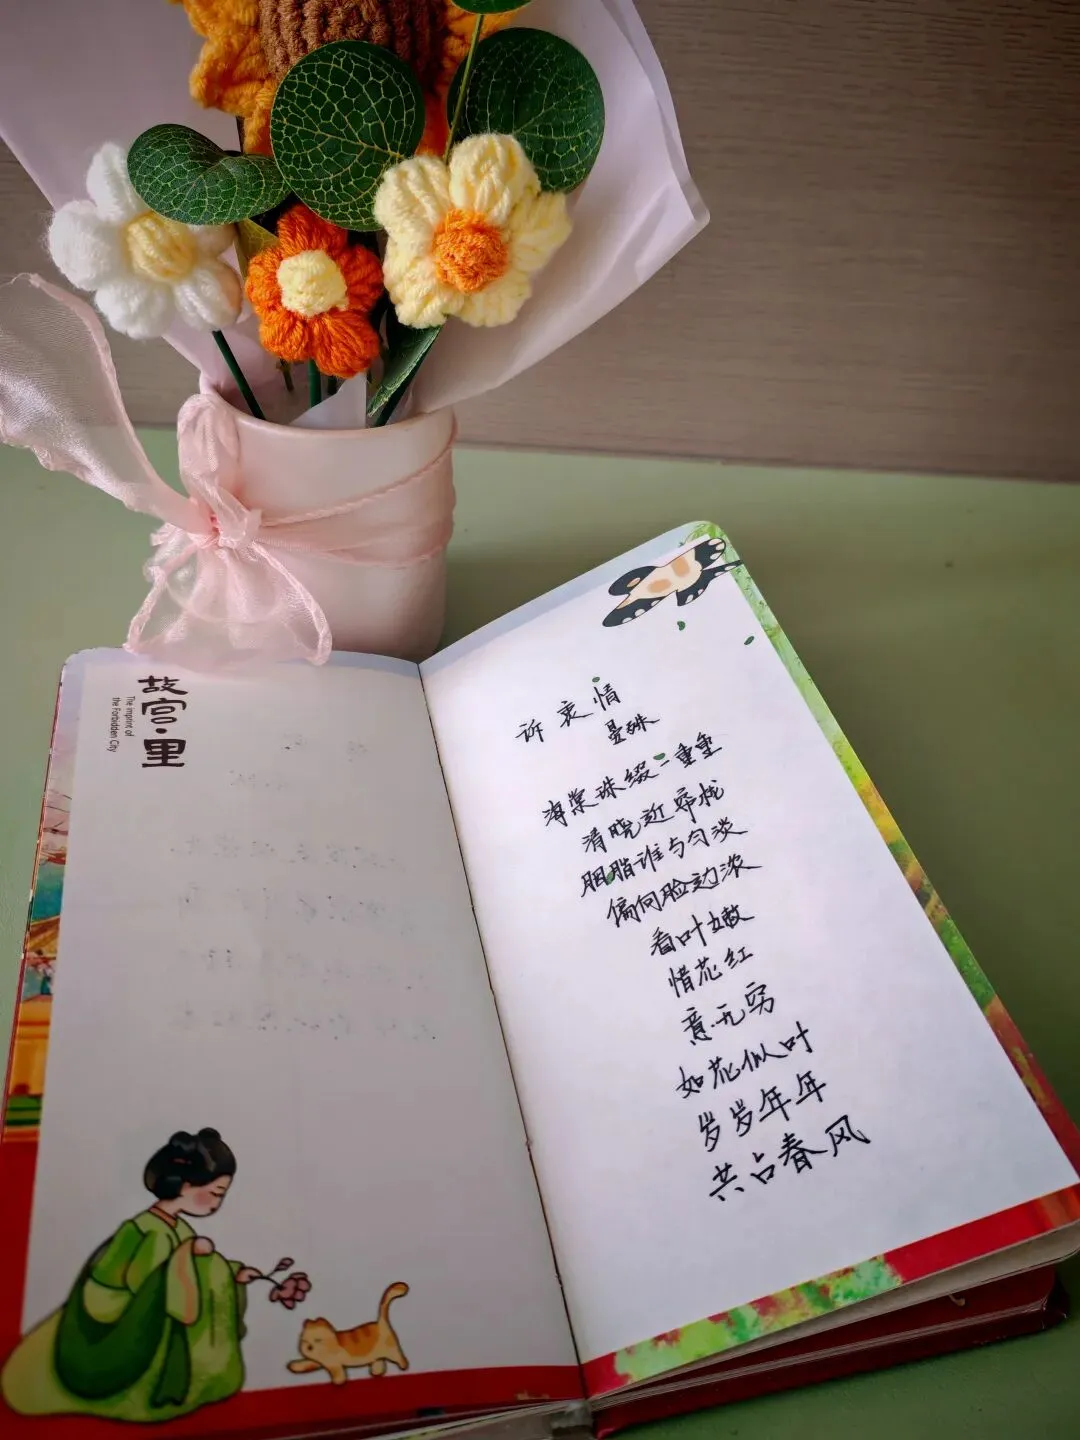 故宫·里
The imprint of
the Forbidden City
诉衷情
晏殊
海棠珠缀一重重
清晓近帘栊
胭脂谁与匀淡
偏向脸边浓
看叶嫩
惜花红
意无穷
如花似叶
岁岁年年
共占春风